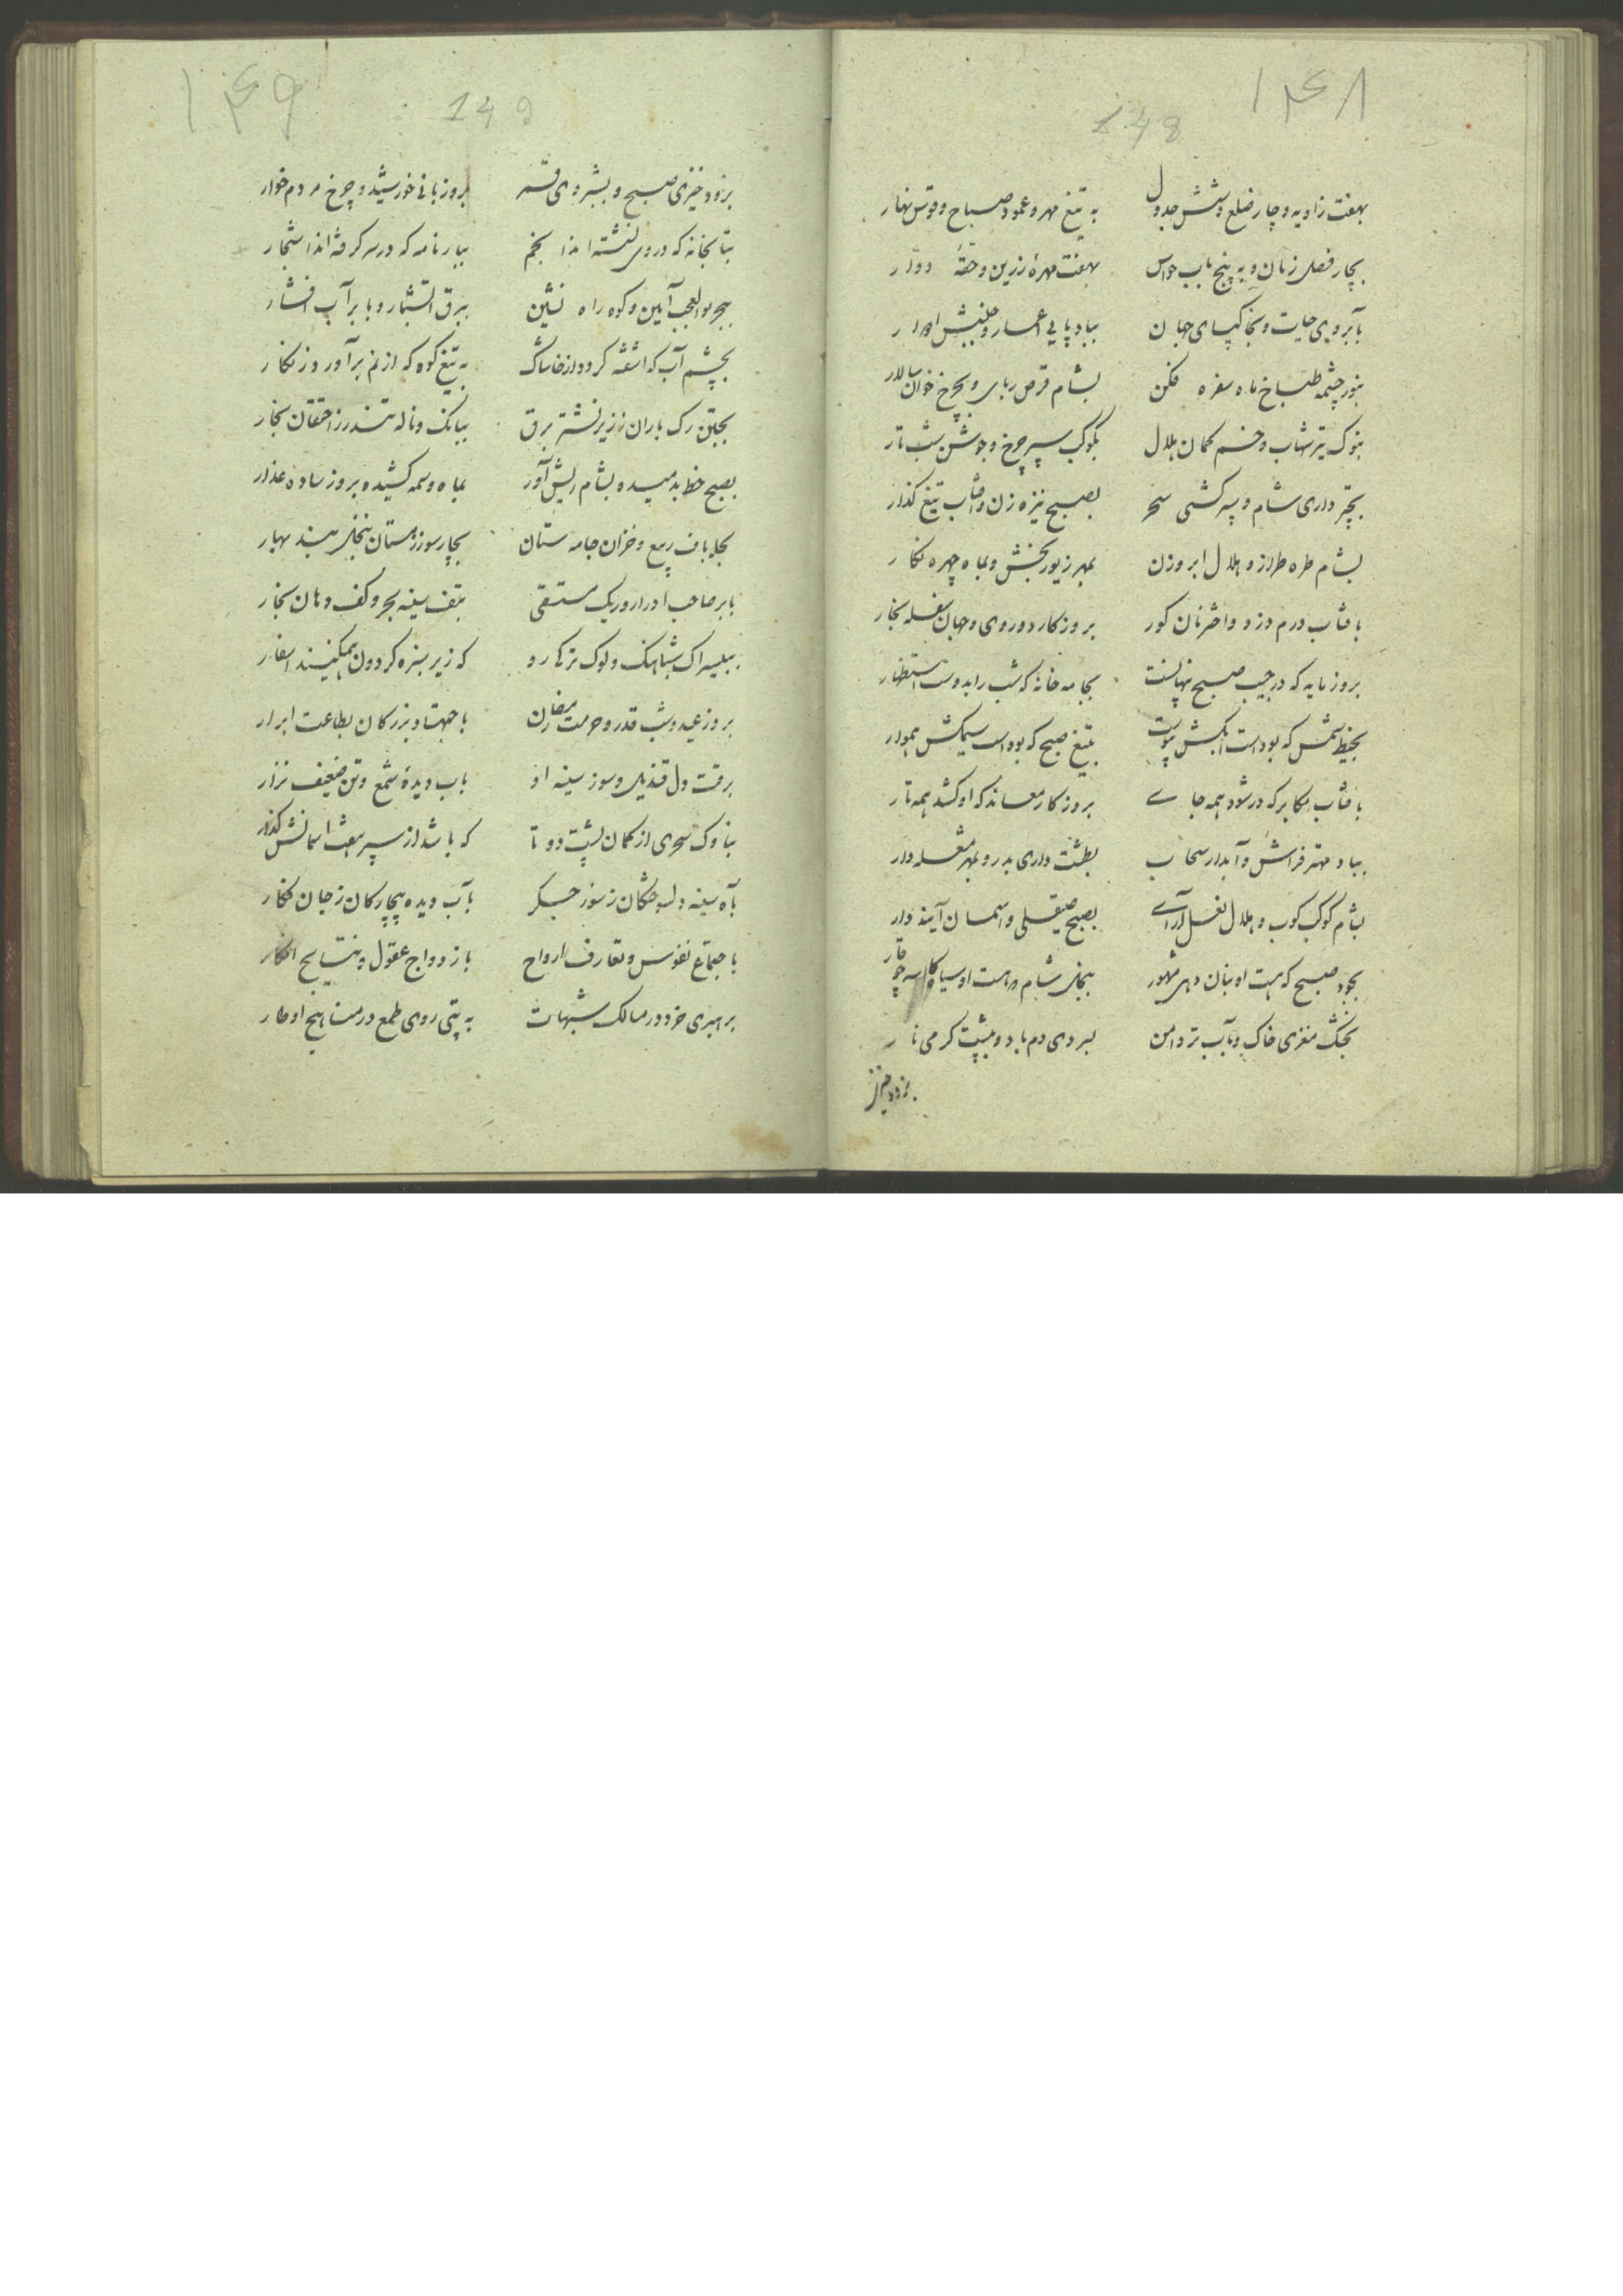 ۱۴۸
148
بهفت زاویه و چار ضلع و شش جدول به تیغ مهر و عمود صباح و قوس نهار
بچار فصل زمان و به پنج باب حواس بهفت مهرهٔ زرین و حقهٔ دوار
بآبروی حیات و بخاکپای جهان بباد پایی اعمار و جنبش ادوار
بنور چشمه طباخ ماه سفره فکن بشام قرص ربای و بچرخ خوان سالار
بنوک تیر شهاب و خم کمان هلال بکوکب سپر چرخ و جوشن شب تار
بچتر داری شام و سپر کشی سحر بصبح نیزه زن و آفتاب تیغ گذار
بشام طره طراز و هلال ابروزن بمهر زیور بخش و بماه چهره نگار
بآفتاب درم دزد و اختران کور بروزگار دوروی و جهان سفله بخار
بروز مایه که در جیب صبح پنهانست بجامه خانهٔ که شب را بدوست استظهار
بخیط شمس که بوداست ابکش پیوست بتیغ صبح که بوداست سیمکش هموار
بآفتاب مکابر که در شود همه جای بروزگار معاند که او کشد همه تار
بباد مهتر فراش و آبدار سحاب بطشت داری بدر و بمهر مشعله دار
بشام کوکب کوب و هلال نعل آرای بصبح صیقلی و آسمان آینه دار
بجود صبح که هست او بنان دهی مشهور ببخل شام که هست او سیاه کاسه چو قار
بخشک مغزی خاک و بآب تر دامن بسردی دم باد و بپشت گرمی نار
بزود خیز
۱۴۹
149
بزود خیزی صبح و بشبروی قمر بروزبانی خورشید و چرخ مردم خوار
بتابخانه که در وی نشسته اند انجم ببارنامه که در سر گرفته اند اشجار
ببحر بوالعجب آیین و کوه راه نشین ببرق آتشبار و بابر آب افشار
بچشم آب که آشفته گردد از خاشاک به تیغ کوه که از نم برآورد زنگار
بجستن رگ باران ز زیر نشتر برق ببانگ و ناله تندر ز احتقان بخار
بصبح خط بدمیده بشام ریش آور بماه وسمه کشیده بروز ساده عذار
بحله باف ربیع و خزان جامه ستان بچارسوی زمستان بنخل بند بهار
بابر صاحب ادرار و ریگ مستسقی بتف سینه بحر و کف دهان بخار
ببیسراک شباهنگ و لوک ترک رو که زیر سبزه گردون همی‌کنند اسفار
بروز عید و شب قدر و حرمت رمضان باجتهاد بزرگان بطاعت ابرار
برقت دل قندیل و سوز سینه او بآب دیدهٔ شمع و تن ضعیف نزار
بناوک سحری از کمان پشت دوتا که باشد از سپر هفت آسمانش گذار
بآه سینه دلسوختگان ز سوز جگر بآب دیده بیچارگان ز جان فگار
باجتماع نفوس و تعارف ارواح بازدواج عقول و نتایج افکار
برهبری خرد در مسالک شبهات به پتی روی طمع در مناهج اوطار